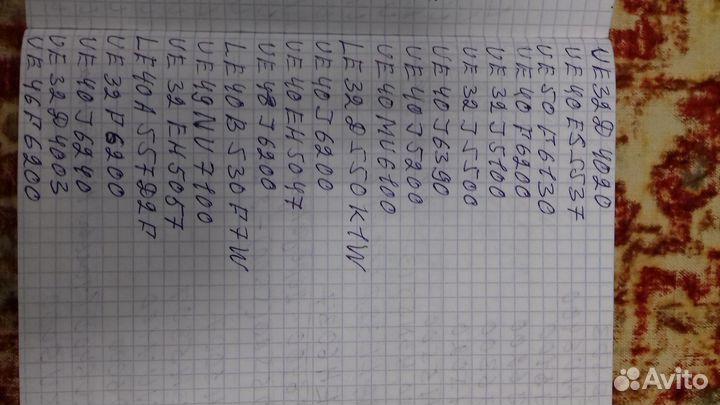 UE 32 D 4020
UE 40 ES 5537
UE 50 F 6130
UE 40 F 6200
UE 32 J 5100
UE 32 J 5500
UE 40 J 6390
UE 40 J 5200
UE 40 MU 6100
LE 32 D 550 K1W
UE 40 J 6200
UE 40 EH 5047
UE 48 J 6200
LE 40 B 530 P7W
UE 49 NU 7100
UE 32 EH 5057
LE 40 A 557 P2F
UE 32 F 6200
UE 40 J 6240
UE 32 D 4003
UE 46 F 6200
Avito